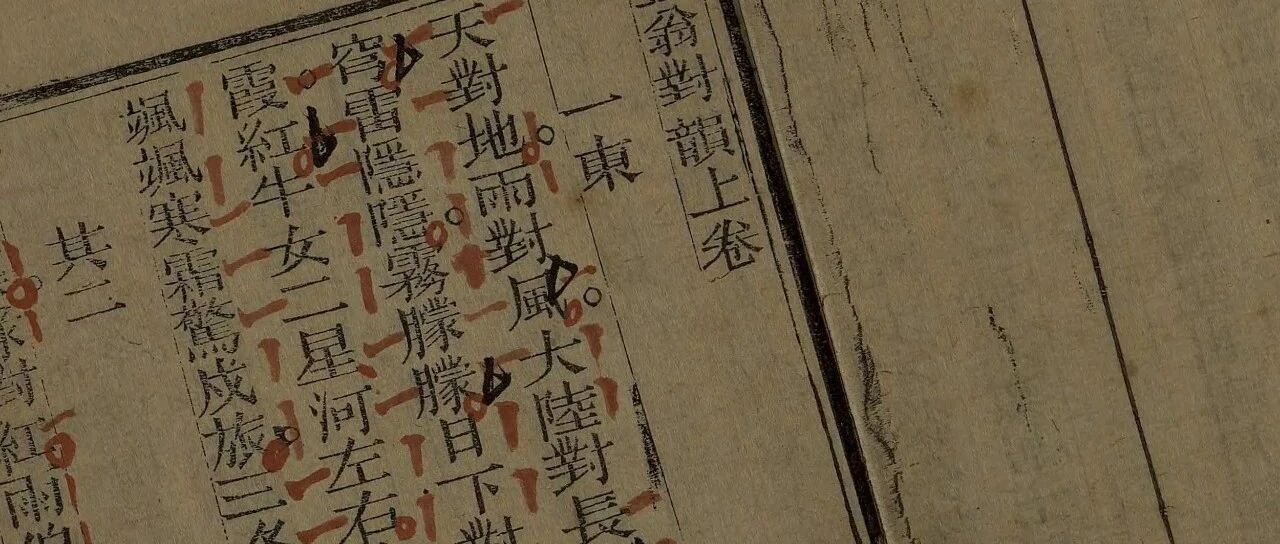 翁對韻上卷
一東
天對地。雨對風。大陸對長
穹雷隱隱。霧朦朦日下對
霞紅牛女二星河左右
颯颯寒霜驚戍旅。三冬
其二
對紅雨